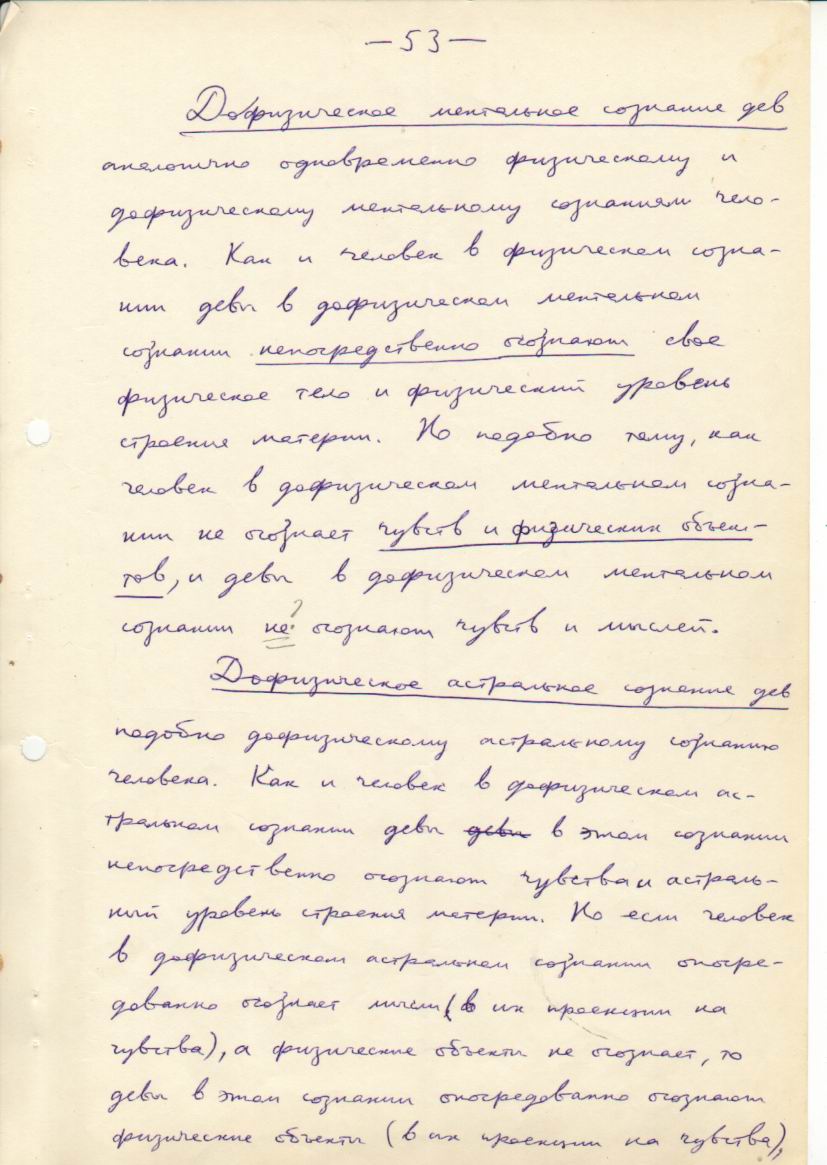 —53—
Дофизическое ментальное сознание дев
аналогично одновременно физическому и
дофизическому ментальному сознаниям чело-
века. Как и человек в физическом созна-
нии девы в дофизическом ментальном
сознании непосредственно осознают свое
физическое тело и физический уровень
строения материи. Но подобно тому, как
человек в дофизическом ментальном созна-
нии не осознает чувств и физических объек-
тов, и девы в дофизическом ментальном
?
сознании не осознают чувств и мыслей.
Дофизическое астральное сознание дев
подобно дофизическому астральному сознанию
человека. Как и человек в дофизическом ас-
тральном сознании девы девы в этом сознании
непосредственно осознают чувства и астраль-
ный уровень строения материи. Но если человек
в дофизическом астральном сознании опосре-
дованно осознает мысли (в их проекции на
чувства), а физические объекты не осознает, то
девы в этом сознании опосредованно осознают
физические объекты (в их проекции на чувства),